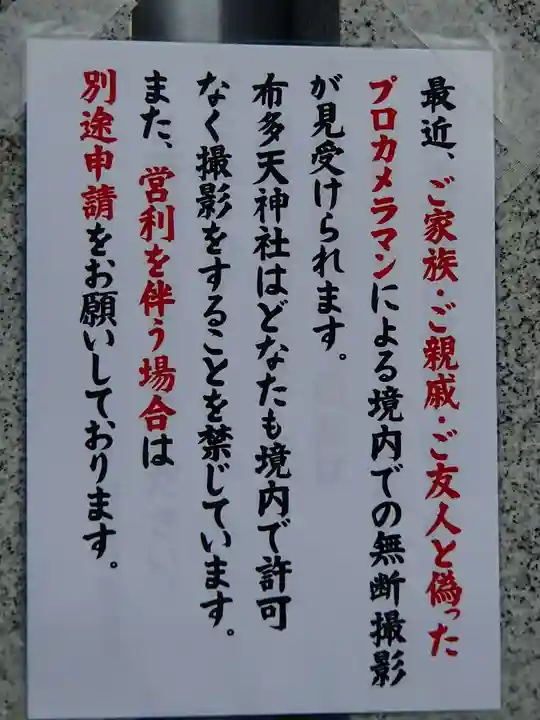 最近、ご家族・ご親戚・ご友人と偽った
プロカメラマンによる境内での無断撮影
が見受けられます。
布多天神社はどなたも境内で許可
なく撮影をすることを禁じています。
また、営利を伴う場合は
別途申請をお願いしております。